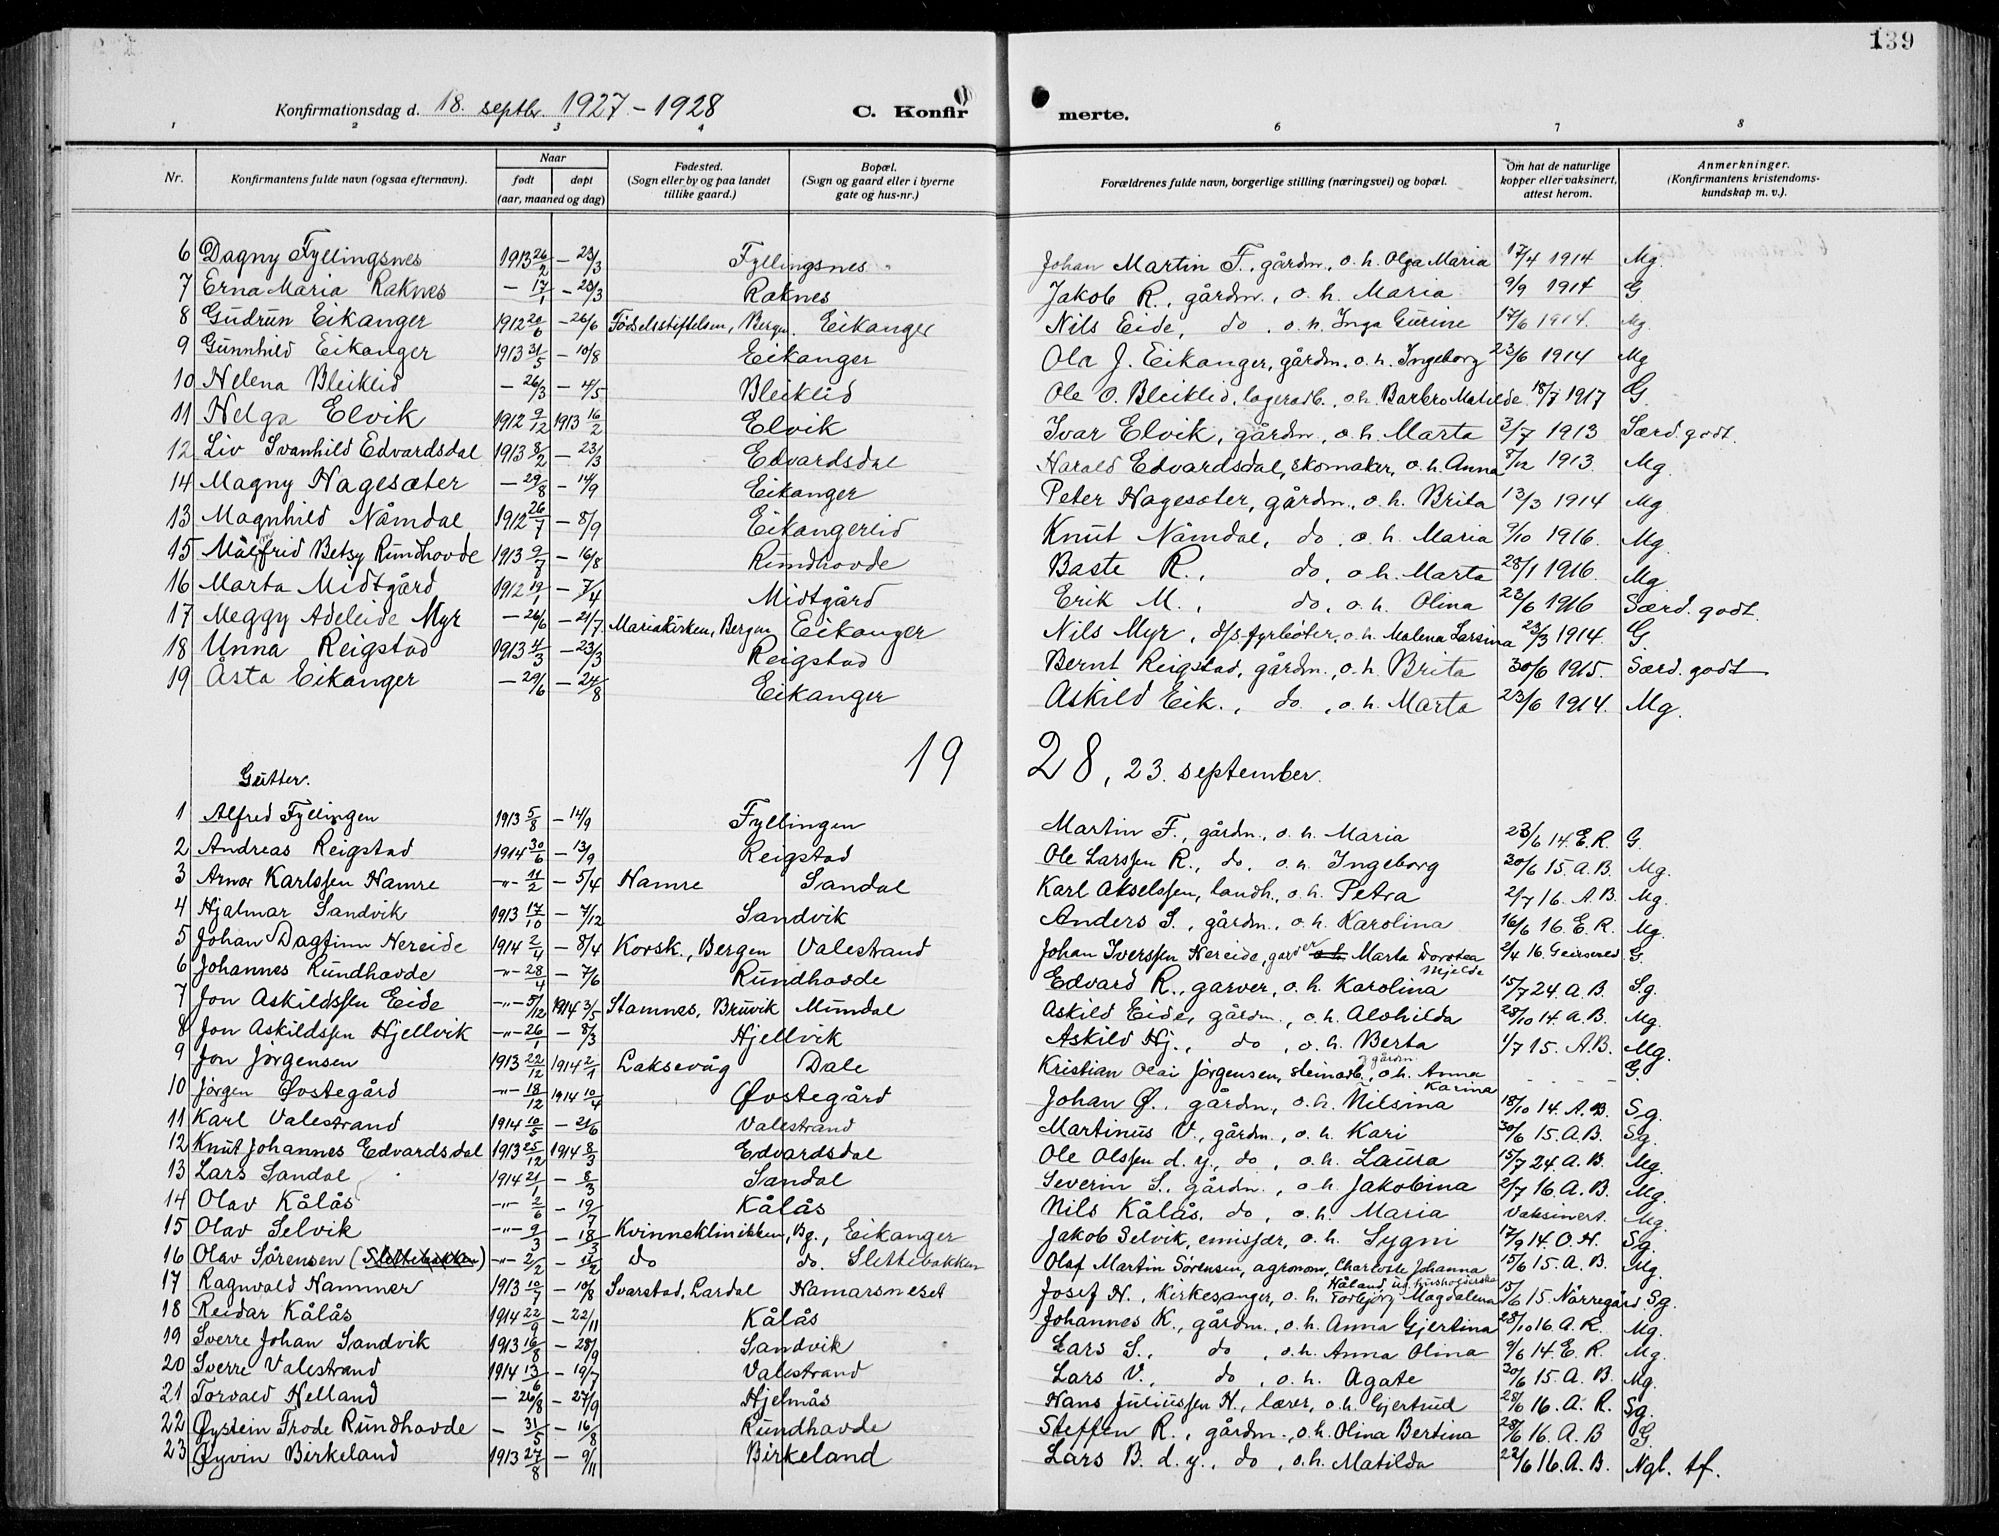 139
Konfirmationsdag d. 18. septbr. 1927 - 1928 C. Konfir merte.
1 2 3 4 6 7 8
Nr. Konfirmantens fulde navn (ogsaa efternavn). Naar født døpt (aar, maaned og dag) Fødested. (Sogn eller by og paa landet tillike gaard.) Bopæl. (Sogn og gaard eller i byerne gate og hus-nr.) Forældrenes fulde navn, borgerlige stilling (næringsvei) og bopæl. Om hat de naturlige kopper eller vaksinert, attest herom. Anmerkninger. (Konfirmantens kristendomskundskap m. v.).
6 Dagny Fyllingsnes 1913 26/2 - 23/3 Fyllingsnes Johan Martin F., gårdm., o.h. Olga Maria 17/4 1914 Mg.
7 Erna Maria Raknes - 17/1 - 23/3 Raknes Jakob R., gårdm., o.h. Maria 9/9 1914 G
8 Gudrun Eikanger 1912 20/6 - 26/6 Födselsstiftelsen, Bergen. Eikanger Nils Eide, do, o.h. Inga Gurine 17/6 1914. Mg
9 Gunnhild Eikanger 1913 31/5 - 10/8 Eikanger Ola J. Eikanger, gårdm. o.h. Ingeborg 23/6 1914 Mg
10 Helena Bleiklid - 26/3 - 4/5 Bleiklid Ole O. Bleiklid, lagerarb., o.h. Barbro Matilde 18/7 1917 G.
11 Helga Elvik 1912 9/12 1913 16/2 Elvik Ivar Elvik, gårdm., o.h. Marta 3/7 1913 Særd. godt.
12 Liv Svanhild Edvardsdal 1913 8/2 - 23/3 Edvardsdal Harald Edvardsdal, skomaker, o.h. Anna 5/12 1913. Mg.
14 Magny Hagesæter - 29/8 - 14/9 Eikanger Peter Hagesæter, gårdm., o.h. Brita 13/3 1914 Mg.
13 Magnhild Nåmdal 1912 26/7 - 8/9 Eikangerlid Knut Nåmdal, do, o.h. Maria 9/10 1916. Mg.
15 Målfrid Betsy Rundhovde 1913 9/7 - 16/8 Rundhovde Baste R., do, o.h. Marta 28/1 1916. Mg.
16 Marta Midtgård 1912 19/1 - 7/4 Midtgård Erik M., do, o.h. Olina 23/6 1916 Særd. godt.
17 Meggy Adeleide Myr - 26/6 - 21/7 Mariakirken, Bergen Eikanger Nils Myr, d/s fyrböter, o.h. Malena Larsina 23/3 1914. G
18 Unna Reigstad 1913 4/3 - 23/3 Reigstad Bernt Reigstad, gårdm., o.h. Brita 30/6 1915. Særd. godt
19 Åsta Eikanger - 29/6 - 24/8 Eikanger Askild Eik., do, o.h. Marta 23/6 1914. Mg.
19 28, 23. september.
Gutter.
1 Alfred Fyllingen 1913 5/8 - 14/9 Fyllingen Martin F., gårdm., o.h. Maria 23/6 14. E.R. G.
2 Andreas Reigstad 1914 30/6 - 13/9 Reigstad Ole Larssen R., do, o.h. Ingeborg 30/6 15. A.B. Mg.
3 Arnor Karlssen Hamre -"- 11/2 - 5/4 Hamre Sandal Karl Akselssen, landh., o.h. Petra 2/7 16. A.B. Mg.
4 Hjalmar Sandvik 1913 17/10 - 7/12 Sandvik Anders S., gårdm., o.h. Karolina 16/6 16. E.R. Mg.
5 Johan Dagfinn Nereide 1914 2/4 - 8/4 Korsk., Bergen Valestrand Johan Iverssen Nereide, garver o.h. Marta Dorotea Mjelde 2/4 16. G.
6 Johannes Rundhovde -"- 28/4 - 7/6 Rundhovde Edvard R., garver, o.h. Karolina 15/7 24. A.B. Sg.
7 Jon Askildssen Eide -"- 5/12 1914 3/5 Stamnes, Bruvik Mundal Askild Eide, gårdm., o.h. Alvhilda 28/10 14. A.B. Mg.
8 Jon Askildssen Hjellvik -"- 26/1 - 8/3 Hjellvik Askild Hj., do, o.h. Berta 1/7 15. A.B. Mg.
9 Jon Jörgensen 1913 22/12 1914 2/1 Laksevåg Dale Kristian Olai Jörgensen, steinarb., gårdm. o.h. Anna Karina - - - - G.
10 Jörgen Övstegård -"- 18/12 1914 10/4 Övstegård Johan Ø., gårdm., o.h. Nilsina 18/10 14. A.B. Sg.
11 Karl Valestrand 1914 10/5 - 21/6 Valestrand Martinus V., gårdm., o.h. Kari 30/6 15. A.B. Sg.
12 Knut Johannes Edvardsdal 1913 25/12 1914 8/3 Edvardsdal Ole Olssen d.y., do, o.h. Laura 15/7 24. A.B. Mg.
13 Lars Sandal 1914 21/1 - 8/3 Sandal Severin S., gårdm., o.h. Jakobina 2/7 16. A.B. Mg.
14 Olav Kålås -"- 2/6 - 19/7 Kålås Nils Kålås, do, o.h. Maria Vaksinert. Mg.
15 Olav Selvik -"- 9/3 - 18/3 Kvinneklinikken, Bg., Eikanger Jakob Selvik, emisjær, o.h. Sygni 17/9 14. O.H. Sg.
16 Olav Sörensen (Slettebakken) -"- 2/2 - 12/2 Do do. Slettebakken Olaf Martin Sörensen, agronom, Charlotte Johanna Håland, ug. husholderska 15/6 15. A.B. Mg.
17 Ragnvald Hammer 1913 10/7 - 10/8 Svarstad, Lardal Hamarsneset Josef H., kirkesanger, o.h. Torbjörg Magdalena 15/6 15. Nörregård Sg.
18 Reidar Kålås 1914 22/9 - 22/11 Kålås Johannes K., gårdm., o.h. Anna Gjertina 28/10 16. A.R. Mg.
19 Sverre Johan Sandvik 1913 16/8 - 28/9 Sandvik Lars S., do, o.h. Anna Olina 9/6 14. E.R. Mg.
20 Sverre Valestrand 1914 13/6 - 19/7 Valestrand Lars V., do, o.h. Agate 30/6 15. A.B. Mg.
21 Torvald Helland - 26/8 - 27/9 Hjelmås Hans Juliussen H., lærer, o.h. Gjertrud 28/6 16. A.R. Sg.
22 Øystein Frode Rundhovde - 31/5 - 16/8 Rundhovde Steffen R., gårdm., o.h. Olina Bertina 28/6 16. A.B G.
23 Øyvin Birkeland 1913 27/8 - 9/11 Birkeland Lars B. d.y., do, o.h. Matilda 22/6 16. A.B. Ngl. tf.